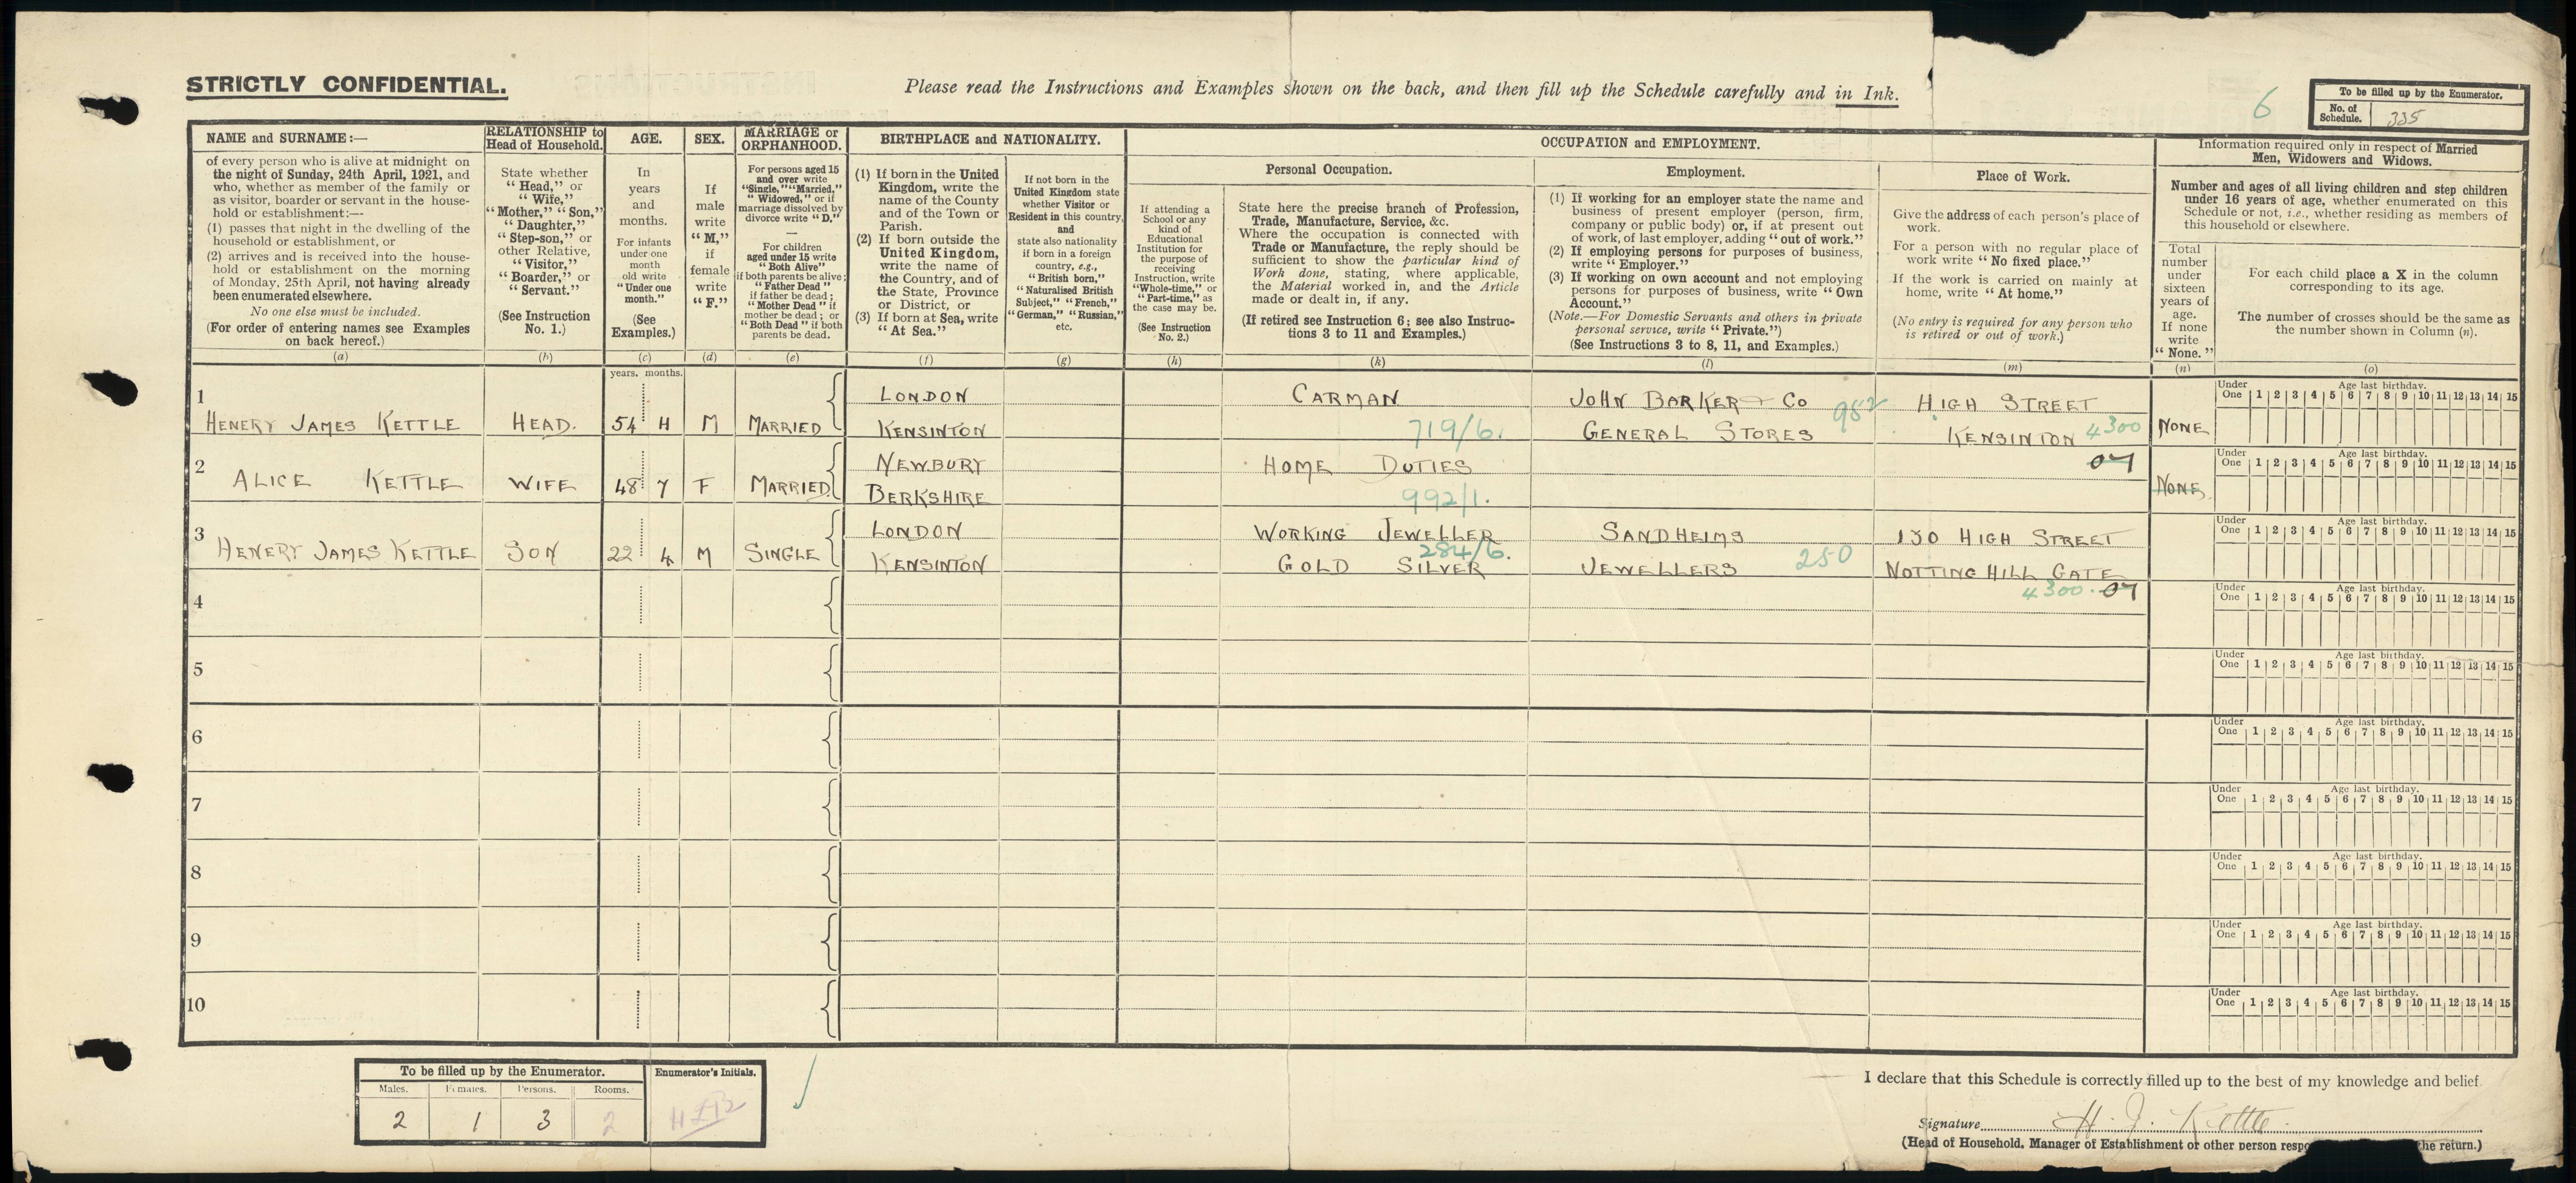 STRICTLY CONFIDENTIAL.
Please read the Instructions and Examples shown on the back, and then fill up the Schedule carefully and in Ink.
6
To be filled up by the Enumerator.
No. of Schedule. 335
NAME and SURNAME:—
of every person who is alive at midnight on
the night of Sunday, 24th April, 1921, and
who, whether as member of the family or
as visitor, boarder or servant in the house-
hold or establishment:—
(1) passes that night in the dwelling of the
household or establishment, or
(2) arrives and is received into the house-
hold or establishment on the morning
of Monday, 25th April, not having already
been enumerated elsewhere.
No one else must be included.
(For order of entering names see Examples
on back hereof.)
(a)
RELATIONSHIP to
Head of Household.
State whether
"Head," or
"Wife,"
"Mother," "Son,"
"Daughter,"
"Step-son," or
other Relative,
"Visitor,"
"Boarder," or
"Servant."
(See Instruction
No. 1.)
(b)
AGE.
In
years
and
months.
For infants
under one
month
old write
"Under one
month."
(See
Examples.)
(c)
SEX.
If
male
write
"M,"
if
female
write
"F."
(d)
MARRIAGE or
ORPHANHOOD.
For persons aged 15
and over write
"Single," "Married,"
"Widowed," or if
marriage dissolved by
divorce write "D."
—
For children
aged under 15 write
"Both Alive"
if both parents be alive;
"Father Dead"
if father be dead;
"Mother Dead" if
mother be dead; or
"Both Dead" if both
parents be dead.
(e)
BIRTHPLACE and NATIONALITY.
(1) If born in the United
Kingdom, write the
name of the County
and of the Town or
Parish.
(2) If born outside the
United Kingdom,
write the name of
the Country, and of
the State, Province
or District, or
(3) If born at Sea, write
"At Sea."
(f)
If not born in the
United Kingdom state
whether Visitor or
Resident in this country,
and
state also nationality
if born in a foreign
country, e.g.,
"British born,"
"Naturalised British
Subject," "French,"
"German," "Russian,"
etc.
(g)
OCCUPATION and EMPLOYMENT.
If attending a
School or any
kind of
Educational
Institution for
the purpose of
receiving
Instruction, write
"Whole-time," or
"Part-time," as
the case may be.
(See Instruction
No. 2.)
(h)
Personal Occupation.
State here the precise branch of Profession,
Trade, Manufacture, Service, &c.
Where the occupation is connected with
Trade or Manufacture, the reply should be
sufficient to show the particular kind of
Work done, stating, where applicable,
the Material worked in, and the Article
made or dealt in, if any.
(If retired see Instruction 6; see also Instruc-
tions 3 to 11 and Examples.)
(k)
Employment.
(1) If working for an employer state the name and
business of present employer (person, firm,
company or public body) or, if at present out
of work, of last employer, adding "out of work."
(2) If employing persons for purposes of business,
write "Employer."
(3) If working on own account and not employing
persons for purposes of business, write "Own
Account."
(Note.—For Domestic Servants and others in private
personal service, write "Private.")
(See Instructions 3 to 8, 11, and Examples.)
(l)
Place of Work.
Give the address of each person's place of
work.
For a person with no regular place of
work write "No fixed place."
If the work is carried on mainly at
home, write "At home."
(No entry is required for any person who
is retired or out of work.)
(m)
Information required only in respect of Married
Men, Widowers and Widows.
Number and ages of all living children and step children
under 16 years of age, whether enumerated on this
Schedule or not, i.e., whether residing as members of
this household or elsewhere.
Total
number
under
sixteen
years of
age.
If none
write
"None."
(n)
For each child place a X in the column
corresponding to its age.
The number of crosses should be the same as
the number shown in Column (n).
(o)
years. months.
1
HENERY JAMES KETTLE HEAD. 54 4 M MARRIED
LONDON
KENSINTON
CARMAN
719/6.
JOHN BARKER & CO 982
GENERAL STORES
HIGH STREET
KENSINTON 4300
07
NONE
Under One Age last birthday. 1 2 3 4 5 6 7 8 9 10 11 12 13 14 15
2
ALICE KETTLE WIFE 48 7 F MARRIED
NEWBURY
BERKSHIRE
HOME DUTIES
992/1.
NONE
Under One Age last birthday. 1 2 3 4 5 6 7 8 9 10 11 12 13 14 15
3
HENERY JAMES KETTLE SON 22 4 M SINGLE
LONDON
KENSINTON
WORKING JEWELLER
284/6.
GOLD SILVER
SANDHEIMS
JEWELLERS 250
130 HIGH STREET
NOTTING HILL GATE
4300. 07
Under One Age last birthday. 1 2 3 4 5 6 7 8 9 10 11 12 13 14 15
4
Under One Age last birthday. 1 2 3 4 5 6 7 8 9 10 11 12 13 14 15
5
Under One Age last birthday. 1 2 3 4 5 6 7 8 9 10 11 12 13 14 15
6
Under One Age last birthday. 1 2 3 4 5 6 7 8 9 10 11 12 13 14 15
7
Under One Age last birthday. 1 2 3 4 5 6 7 8 9 10 11 12 13 14 15
8
Under One Age last birthday. 1 2 3 4 5 6 7 8 9 10 11 12 13 14 15
9
Under One Age last birthday. 1 2 3 4 5 6 7 8 9 10 11 12 13 14 15
10
Under One Age last birthday. 1 2 3 4 5 6 7 8 9 10 11 12 13 14 15
To be filled up by the Enumerator.
Males. Females. Persons. Rooms.
2 1 3 2
Enumerator's Initials.
I declare that this Schedule is correctly filled up to the best of my knowledge and belief
Signature H. J. Kettle
(Head of Household, Manager of Establishment or other person respo he return.)